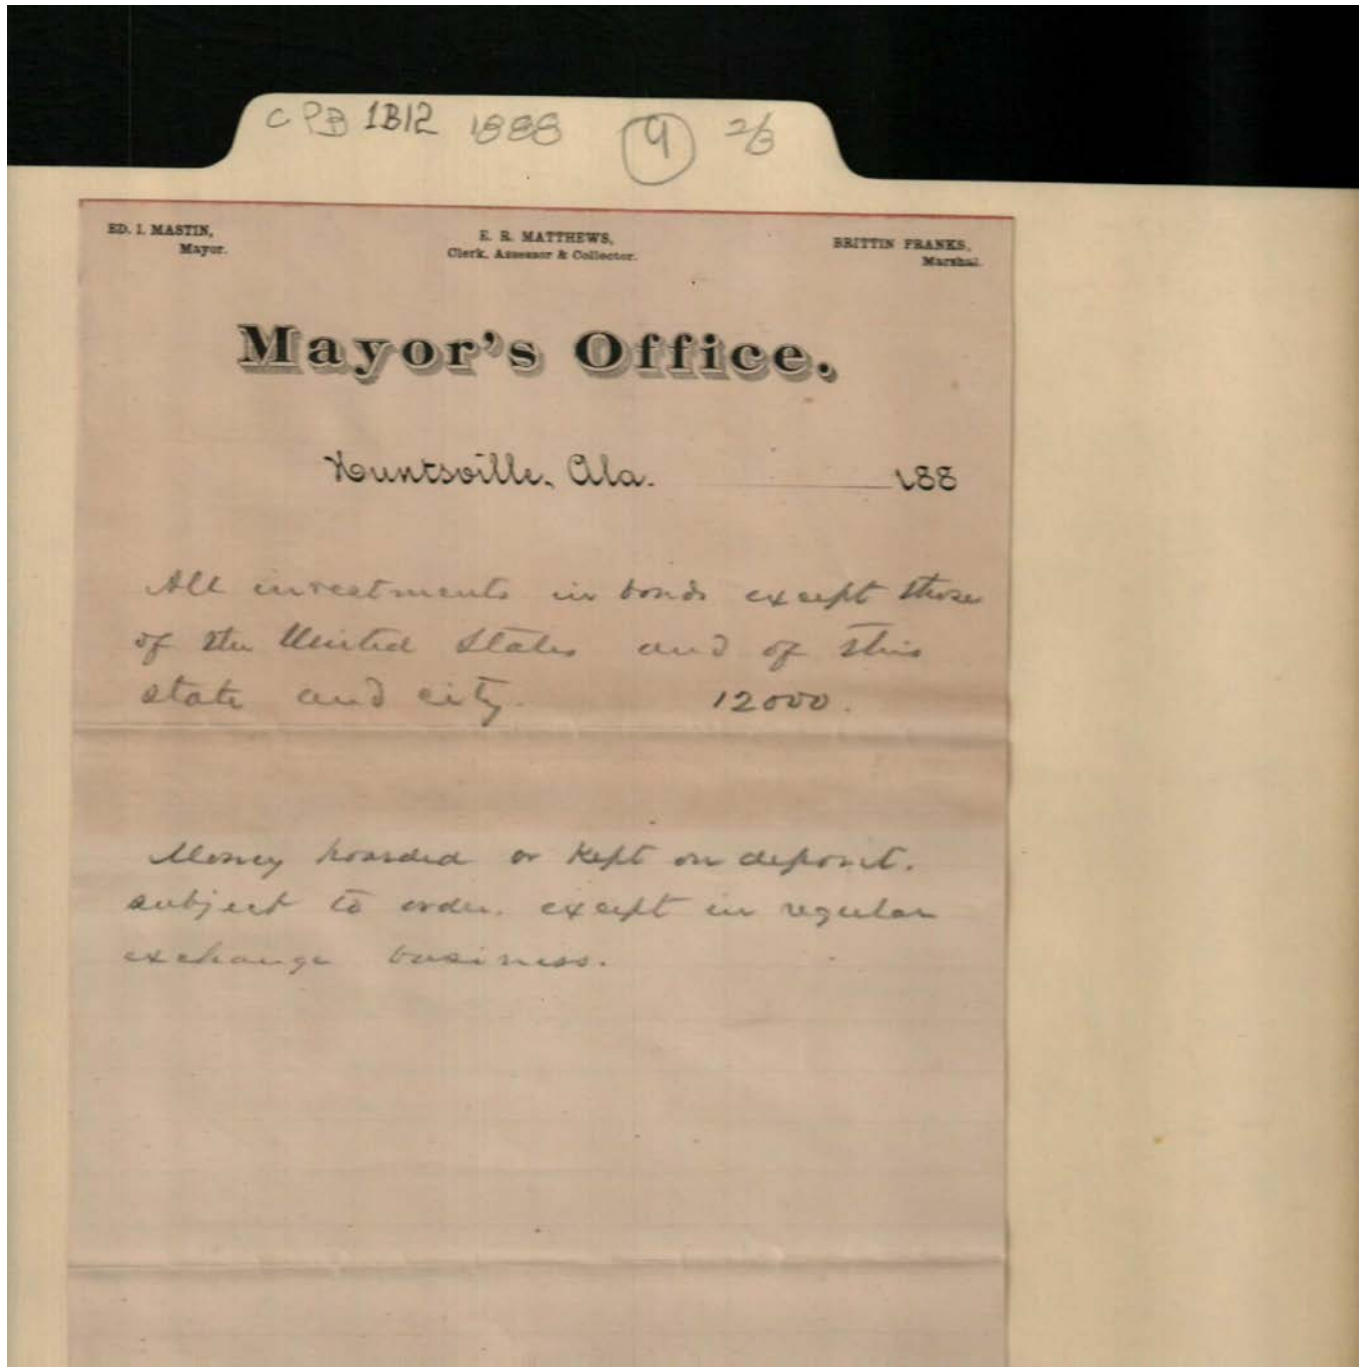 CPB 1B12 1888 9 2/3
ED. I. MASTIN,
Mayor.
E. R. MATTHEWS,
Clerk, Assessor & Collector.
BRITTIN FRANKS,
Marshal.
Mayor's Office.
Huntsville, Ala. 188
All investments in bonds except those
of the United States and of this
state and city. 12000.
Money hoarded or kept on deposit.
subject to order. except in regular
exchange business.